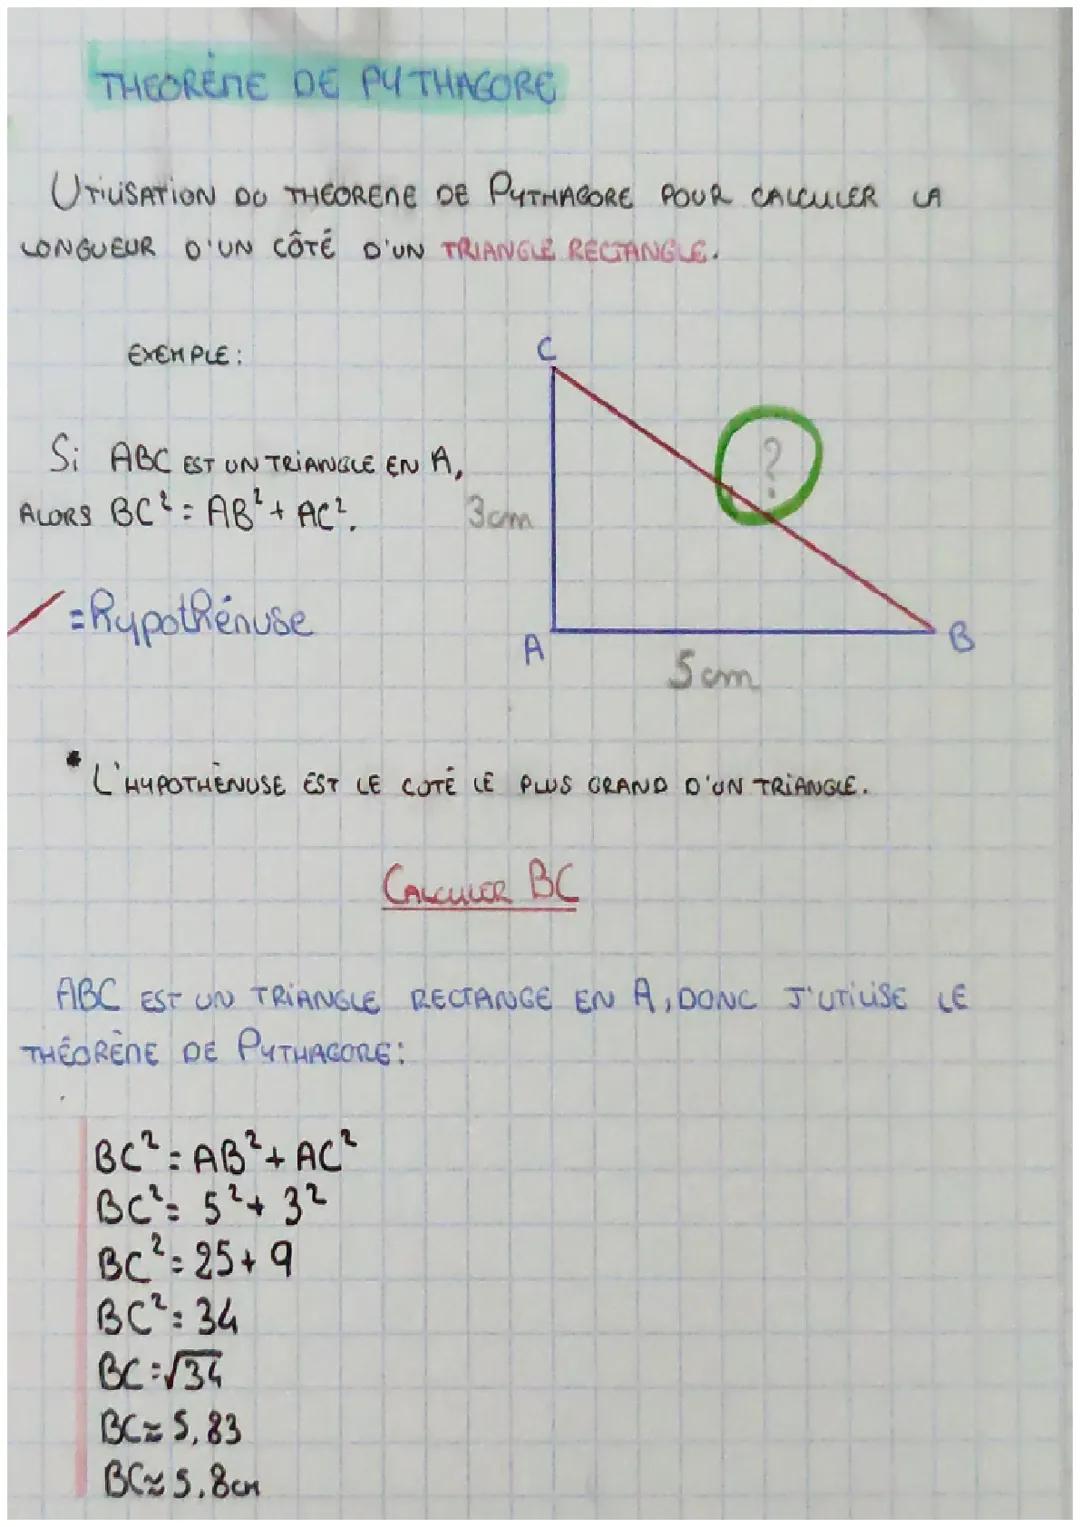 THEORÈME DE PYTHAGORE
UTILISATION DU THEOREME DE PYTHAGORE POUR CALCULER LA
LONGUEUR D'UN CÔTÉ D'UN TRIANGLE RECTANGLE.
EXEMPLE:
C
?
Si ABC EST UN TRIANGLE EN A,
ALORS BC² = AB² + AC².
3cm
= Hypothénuse
A
B
5cm
* L'HYPOTHÈNUSE EST LE COTÉ LE PLUS GRAND D'UN TRIANGLE.
CALCULER BC
ABC EST UN TRIANGLE RECTANGE EN A, DONC J'UTILISE LE
THÉORÈME DE PYTHAGORE:
BC² = AB² + AC²
BC² = 5² + 3²
BC² = 25 + 9
BC² = 34
BC = √34
BC ≈ 5,83
BC ≈ 5,8cm